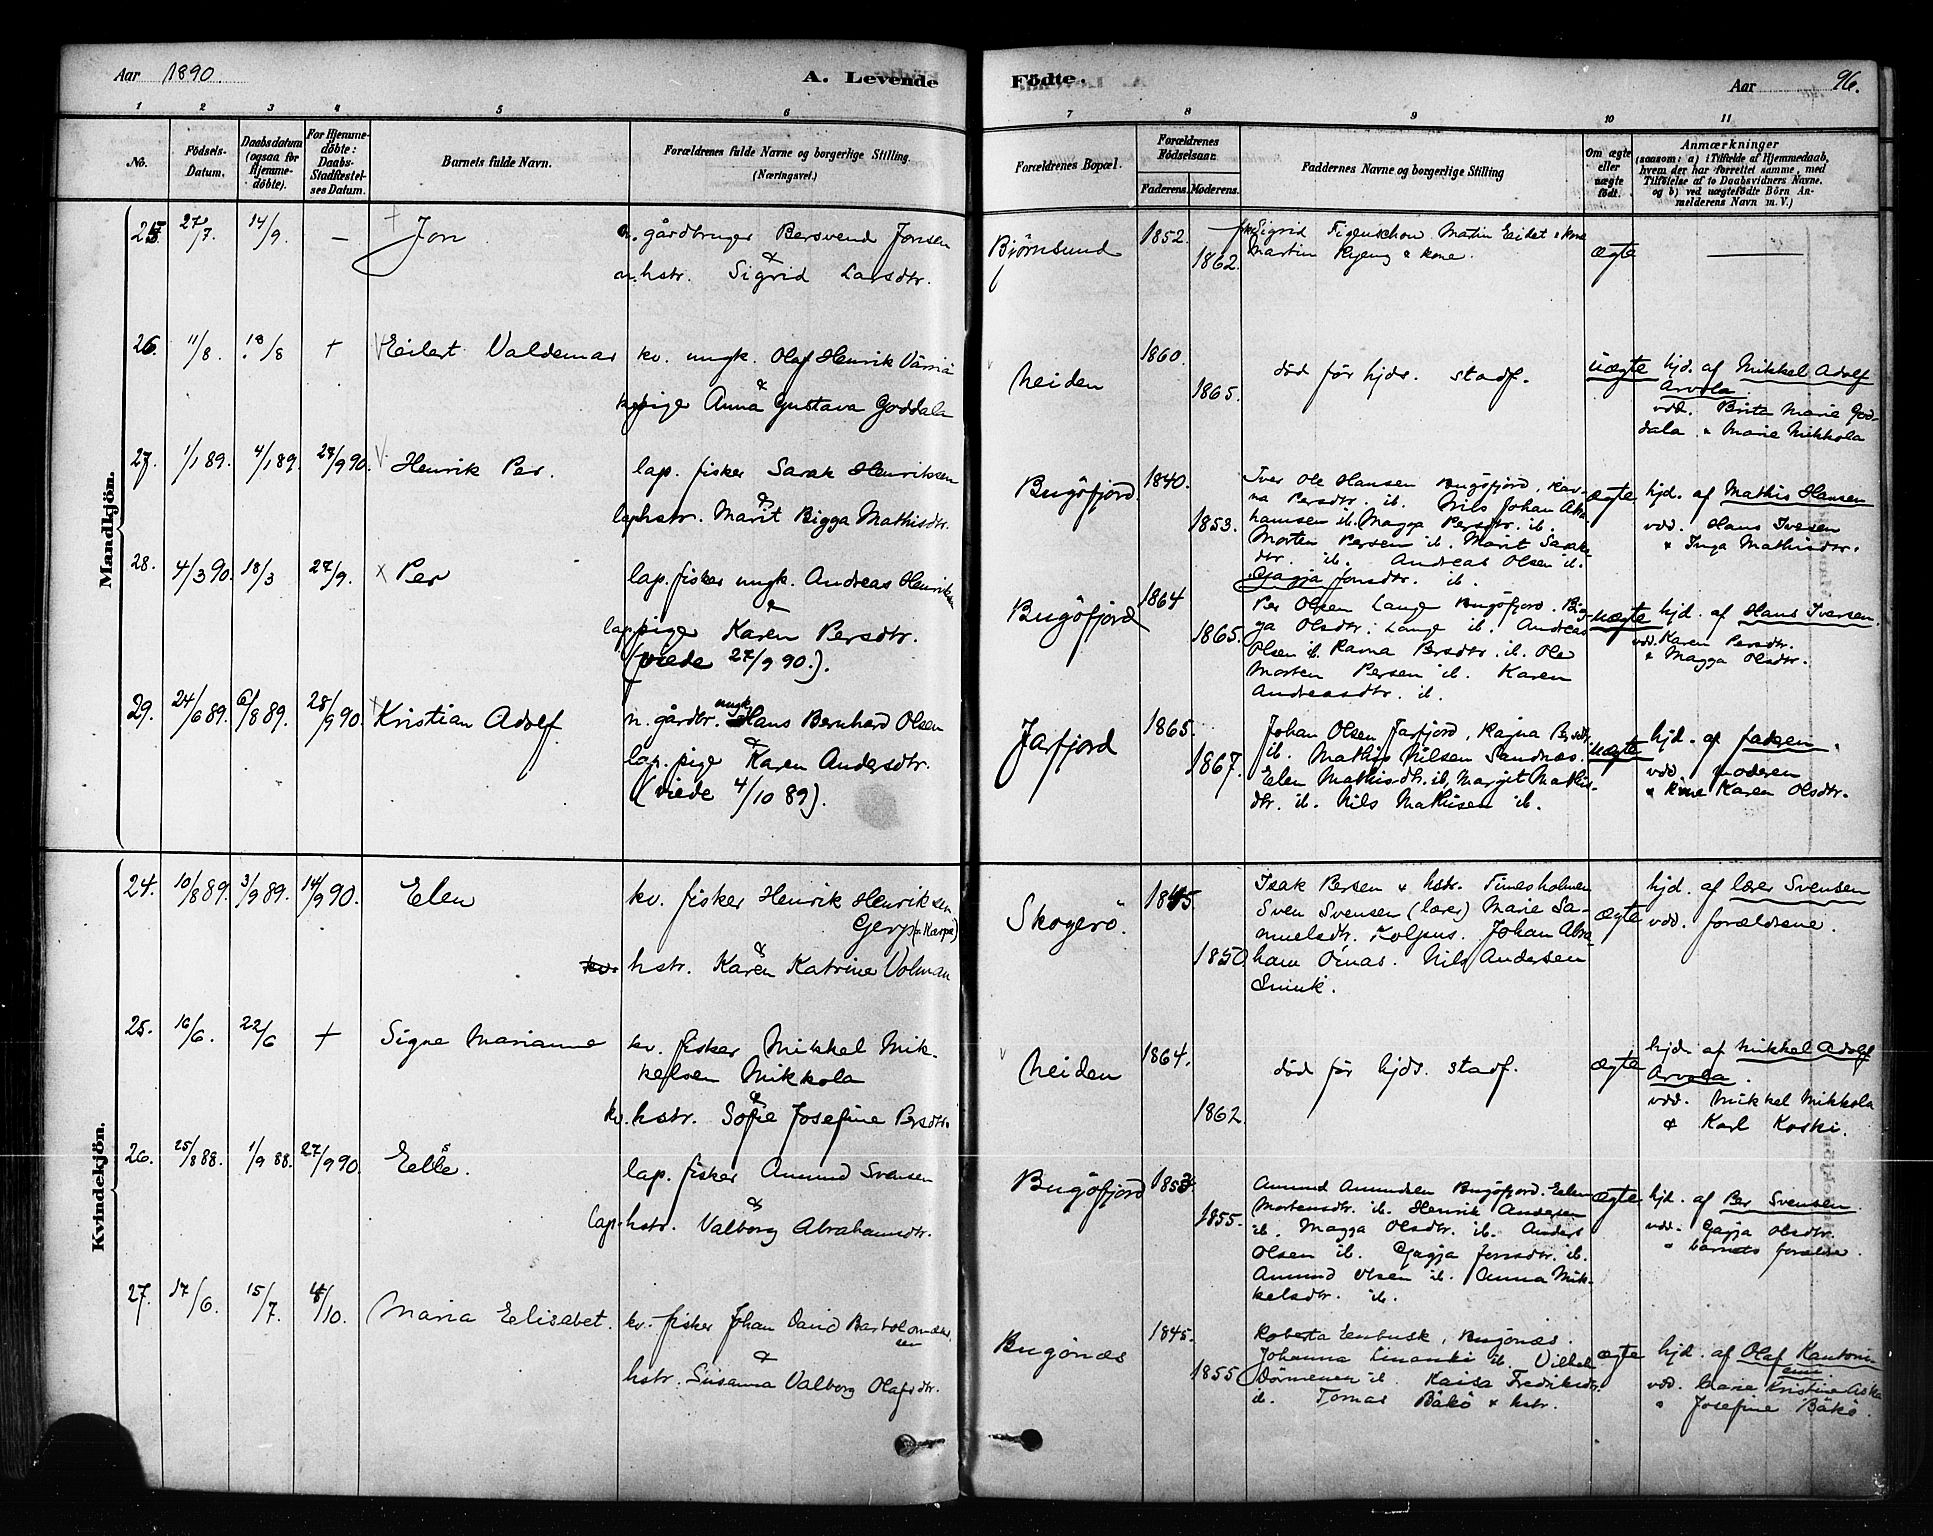 Aar 1890.
A. Levende
Fødte.
Aar 96.
1 2 3 4 5 6 7 8 9 10 11
No.
Fødsels-
Datum.
Daabsdatum
(ogsaa for
Hjemme-
døbte).
For Hjemme-
døbte:
Daabs-
Stadfæstel-
ses Datum.
Barnets fulde Navn.
Forældrenes fulde Navne og borgerlige Stilling.
(Næringsvei.)
Forældrenes Bopæl.
Forældrenes
Fødselsaar.
Faderens. Moderens.
Faddernes Navne og borgerlige Stilling
Om ægte
eller
uægte
født.
Anmærkninger
(saasom: a) i Tilfælde af Hjemmedaab,
hvem der har forrettet samme, med
Tilføielse af to Daabsvidners Navne,
og b) ved uægtefødte Børn An-
melderens Navn m. V.)
Mandkjön.
25. 27/7. 14/9. — Jon.
n. gårdbruger Bersvend Jonsen
&
n. hstr. Sigrid Larsdtr.
Björnsund
1852.
1862.
Sigrid Figenschou Martin Eidet & kone
Martin & kone.
ægte
26. 11/8. 18/8 + Eilert Valdemar
kv. ungk. Olaf Henrik
&
kv. pige Anna Gustava Goddala
Neiden
1860.
1865.
död för hjds. stadf.
uægte
hjd. af Mikkel Adolf
Arvola
vdd. Brita Marie God-
dala & Marie Mikkola
27. 1/1 89. 4/1 89. 28/9 90. Henrik Per.
lap. fisker Sarak Henriksen
&
lap. hstr. Marit Bigga Mathisdtr.
Bugöfjord
1840.
1853.
Iver Ole Hansen Bugöfjord, Kar-
na Persdtr. ib. Nils Johan Abra
hamsen ib. Magga Persdtr. ib.
Morten Persen ib. Marit Sarak-
dtr. ib. Andreas Olsen ib.
Gagja Jonsdtr. ib.
ægte
hjd. af Mathis Hansen
vdd. Hans Iversen
& Inga Mathisdtr.
28. 4/3 90. 18/3 27/9. Per
lap. fisker ungk. Andreas Henriksen
&
lap. pige Karen Persdtr.
(viede 27/9 90.).
Bugöfjord
1864
1865.
Per Olsen Lange Bugöfjord. Big-
ga Olsdtr. Lange ib. Andreas
Olsen ib. Ravna Persdtr. ib. Ole
Morten Persen ib. Karen
Andreasdtr. ib.
uægte
hjd. af Hans Iversen.
vdd. Karen Persdtr.
& Magga Olsdtr.
29. 24/6 89. 6/8 89. 28/9 90 Kristian Adolf.
n. gårdbr. ungk. Hans Bernhard Olsen
&
lap. pige Karen Andersdtr.
(viede 4/10 89).
Jarfjord
1865.
1867.
Johan Olsen Jarfjord, Ragna Persdtr.
ib. Mathis Nilsen Sandnæs.
Elen Mathisdtr. ib. Margit Mathis-
dtr. ib. Nils Mathisen ib.
uægte
hjd. af faderen.
vdd. moderen
& kone Karen Olsdtr.
Kvindekjön.
24. 10/8 89. 3/9 89. 14/9 90. Elen
kv. fisker Henrik Henriksen
&
hstr. Karen Katrine Volman
Skogerö.
1845.
1850
Isak Persen & hstr.
Sven Svensen (lærer) Marie Sa-
muelsdtr. Kolpus. Johan Abra
ham Nils Andersen
ægte
hjd. af lærer Svensen
vdd. forældrene.
25. 16/6. 22/6 + Signe Marianne
kv. fisker Mikkel Mik-
kelsen Mikkola
&
kv. hstr. Sofie Josefine Persdtr.
Neiden
1864.
1862.
död för hjds. stadf.
ægte
hjd. af Mikkel Adolf
Arvola.
vdd. Mikkel Mikkola
& Karl Koski.
26. 25/8 88. 1/9 88. 27/9 90.
lap. fisker Amund Svensen
&
lap. hstr. Valborg Abrahamsdtr.
Bugöfjord
1853
1855.
Amund Amundsen Bugöfjord. Elen
Mortensdtr. ib. Henrik Andersen
ib. Magga Olsdtr. ib. Anders
Olsen ib. Gagja Jonsdtr. ib.
Amund Olsen ib. Anna Mik-
kelsdtr. ib.
ægte
hjd. af Per Svensen
vdd. Gagja Olsdtr.
" barnets forældre.
27. 17/6. 15/7. 4/10. Maria Elisabet.
kv. fisker Johan David Bartolomæus
sen
&
hstr. Susanna Valborg Olafsdtr.
Bugönæs
1845.
1855
Roberta Bugönæs.
Johanna ib. Vilhelm
ib. Kaisa Fredriksdtr.
ib. Tomas Bäkö & hstr.
ægte
hjd. af Olaf
vdd. Marie Kristine
" Josefine Bäkö.